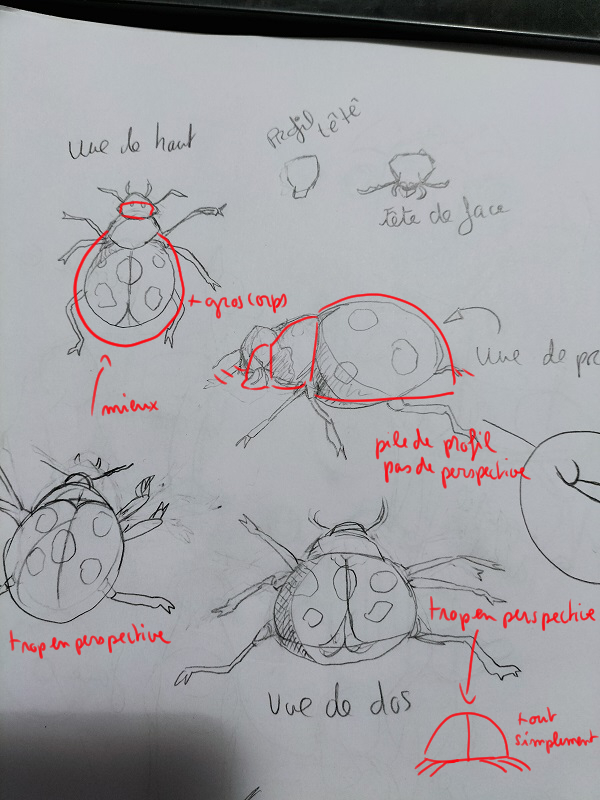 Vue de haut
Profil
tête
tête de face
+ gros corps
Vue de pro
mieux
pile de profil
pas de perspective
trop en perspective
trop en perspective
Vue de dos
tout
simplement